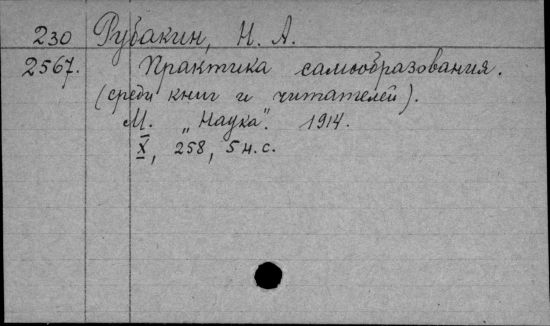 230 Рубакин, Н. А.
2567. Практика самообразования.
(среди книг и читателей).
М. „Наука". 1914.
X, 258, 5 н. с.